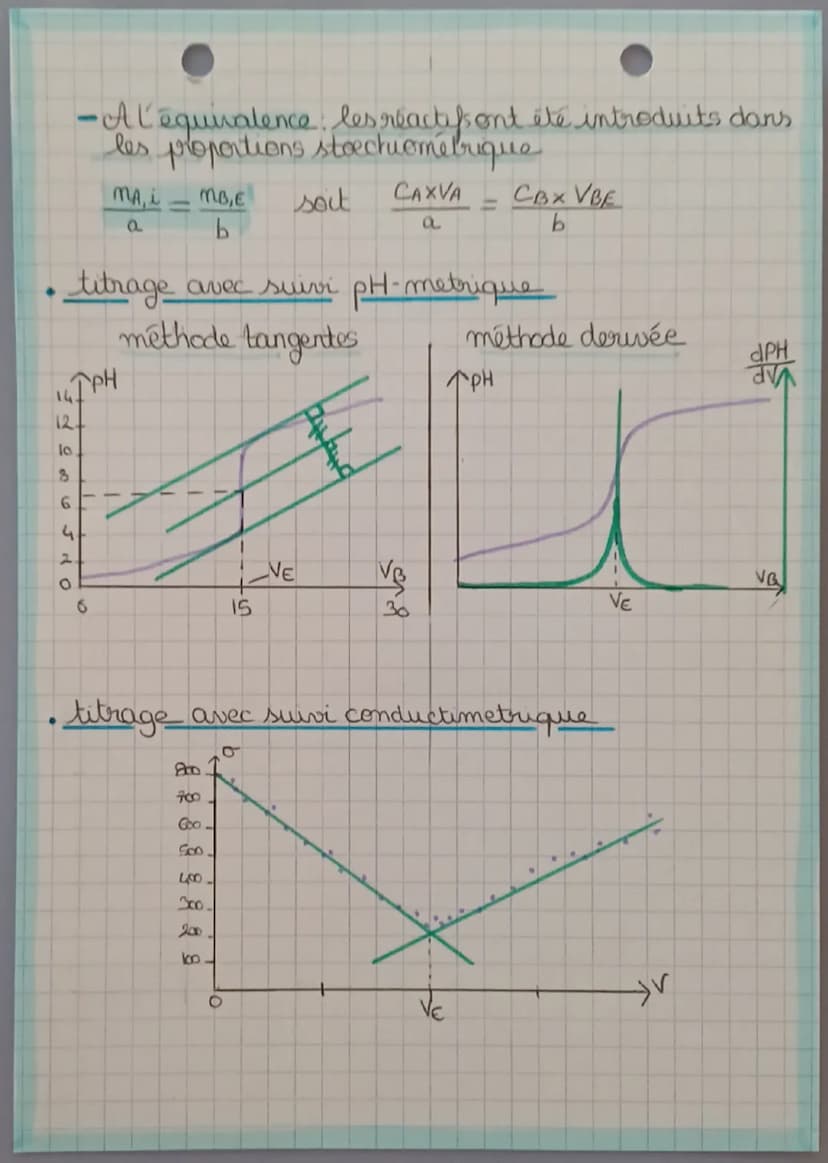 - A l'équivalence : les réactifs ont été introduits dans
les proportions stoechiométrique
nA,i / a = nB,E / b soit CA×VA / a = CB×VBE / b
• titrage avec suivi pH-metrique
méthode tangentes
méthode derivée
pH
14
12
10
8
6
4
2
0
6
15
30
VE
VB
pH
dPH / dV
VE
VB
• titrage avec suivi conductimetrique
σ
800
700
600
500
400
300
200
100
0
VE
V